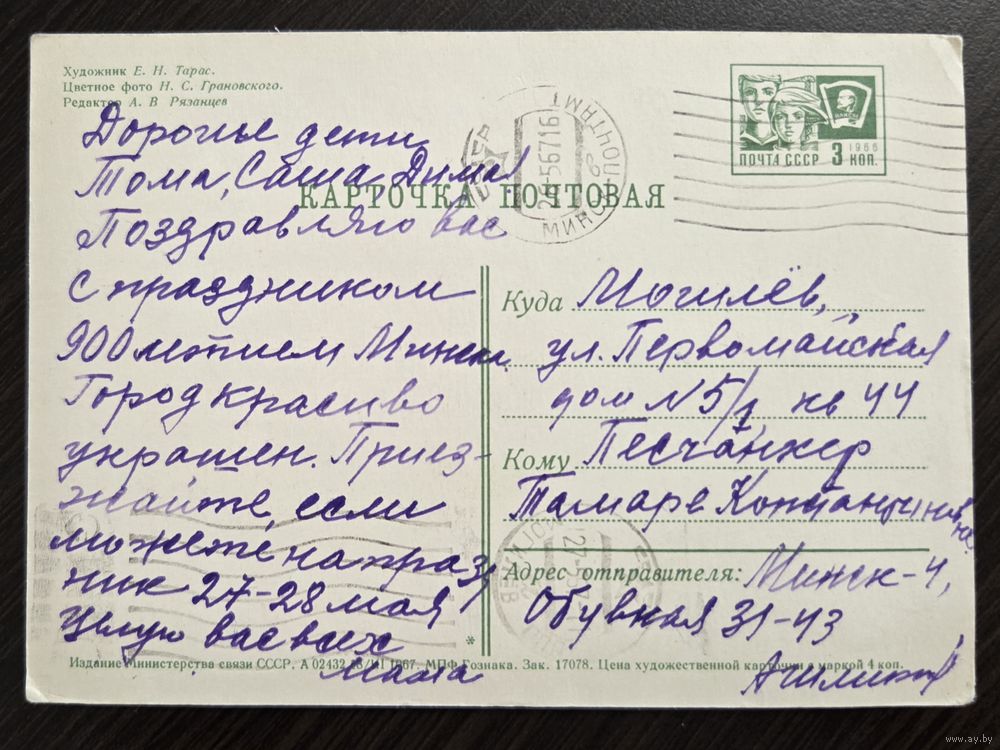 Художник Е. Н. Тарас.
Цветное фото Н. С. Грановского.
Редактор А. В Рязанцев
ПОЧТА СССР 3 КОП.
1966
МИНСК ПОЧТАМТ
КАРТОЧКА ПОЧТОВАЯ
Дорогие дети
Тома, Саша, Дима!
Поздравляю вас
с праздником
900летием Минска.
Город красиво
украшен. Приез-
жайте, если
можете на празд
ник 27-28 мая
Целую вас всех
Мама
Куда Могилёв,
ул. Первомайская
дом N 5/1 кв 44
Кому Песчанкер
Тамаре Константиновна
Адрес отправителя: Минск-4,
Обувная 31-43
Издание Министерства связи СССР. А 02432 28/III 1967. МПФ Гознака. Зак. 17078. Цена художественной карточки с маркой 4 коп.
www.ay.by